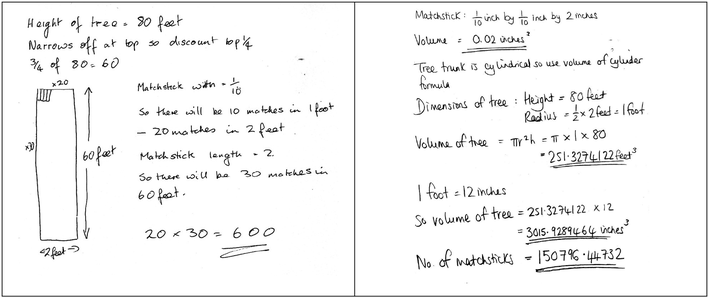 Height of tree = 80 feet
Narrows off at top so discount top 1/4
3/4 of 80 = 60
x20
x30
60 feet
<2 feet>
Matchstick with = 1/10
So there will be 10 matches in 1 foot
– 20 matches in 2 feet.
Matchstick length = 2
So there will be 30 matches in
60 feet.
20 x 30 = 600
Matchstick: 1/10 inch by 1/10 inch by 2 inches
Volume = 0.02 inches³
Tree trunk is cylindrical so use volume of cylinder
formula
Dimensions of tree: Height = 80 feet
Radius = 1/2 x 2 feet = 1 foot
Volume of tree = πr²h = π x 1 x 80
= 251.3274122 feet³
1 foot = 12 inches
So volume of tree = 251.3274122 x 12
= 3015.9289464 inches³
No. of matchsticks = 150796.44732